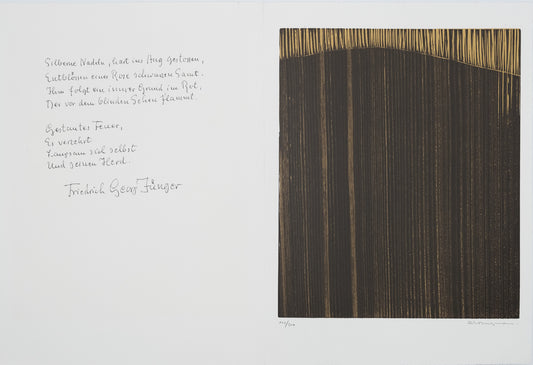 Silberne Nadeln, hart ins Aug gestossen,
Entblössen einer Rose schwarzen Samt.
Ihm folgt ein innrer Grund im Rot,
Der vor dem blinden Sehen flammt.
Gestautes Feuer,
Es verzehrt
Langsam sich selbst
Und seinen Herd.
Friedrich Georg Jünger